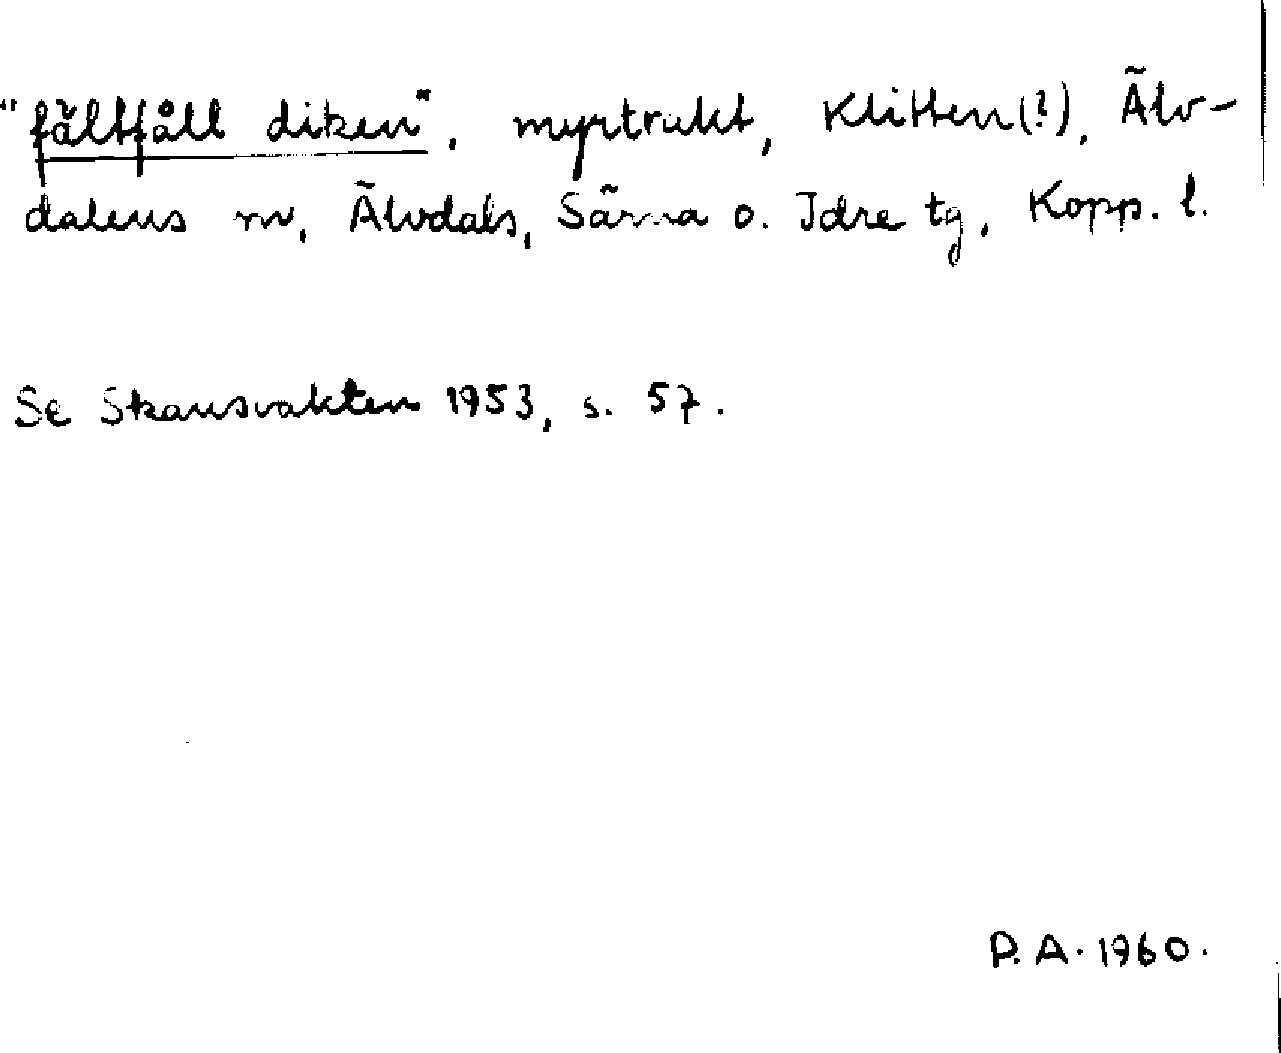 "fältfåll diken", myrtrakt, Klitten(?), Älv-
dalens sn, Älvdals, Särna o. Idre tg, Kopp. l.
Se Skansvakten 1953, s. 57.
P. A. 1960.